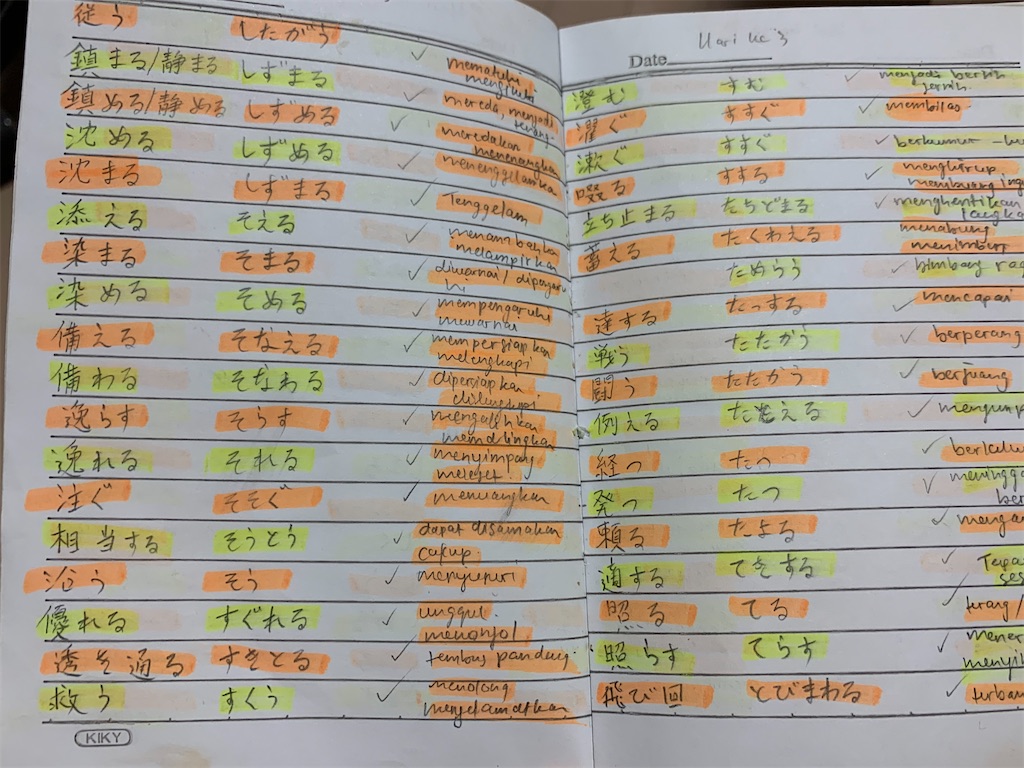 従う したがう mematuhi
mengikuti
鎮まる/静まる しずまる mereda, menjadi
tenang
鎮める/静める しずめる meredakan
menenangkan
沈める しずめる menenggelamkan
沈まる しずまる Tenggelam
添える そえる menambahkan
melampirkan
染まる そまる diwarnai/
染める そめる mempengaruhi
mewarnai
備える そなえる mempersiapkan
melengkapi
備わる そなわる dipersiapkan
dilengkapi
逸らす そらす mengalihkan
memalingkan
逸れる それる menyimpang
meleset
注ぐ そそぐ menuangkan
相当する そうとう dapat disamakan
cukup.
沿う そう menyusuri
優れる すぐれる unggul.
menonjol
透き通る すきとる tembus pandang
救う すくう menolong
menyelamatkan
KIKY
Hari ke 3
Date
澄む すむ menjadi bersih
jernih
濯ぐ すすぐ membilas
漱ぐ すすぐ berkumur
啜る すする menghirup
membuang ing
立ち止まる たちどまる menghentikan
langka
蓄える たくわえる menabung
menimbun
ためらう bimbang rag
達する たっする mencapai
戦う たたかう berperang
闘う たたかう berjuang
例える たとえる mengump
経つ たつ berlalu
発つ たつ meningga
ber
頼る たよる mengan
適する てきする Tepa
ses
照る てる terang/
照らす てらす mener
menyi
飛び回 とびまわる terban